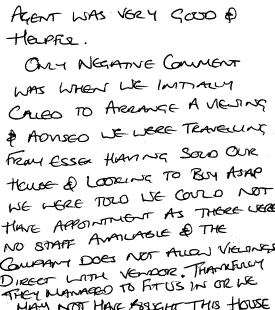 AGENT WAS VERY GOOD &
HELPFUL.
ONLY NEGATIVE COMMENT
WAS WHEN WE INITIALLY
CALLED TO ARRANGE A VIEWING
& ADVISED WE WERE TRAVELLING
FROM ESSEX HAVING SOLD OUR
HOUSE & LOOKING TO BUY ASAP
WE WERE TOLD WE COULD NOT
HAVE APPOINTMENT AS THERE WERE
NO STAFF AVAILABLE & THE
COMPANY DOES NOT ALLOW VIEWINGS
DIRECT WITH VENDOR. THANKFULLY
THEY MANAGED TO FIT US IN OR WE
MAY NOT HAVE BOUGHT THIS HOUSE